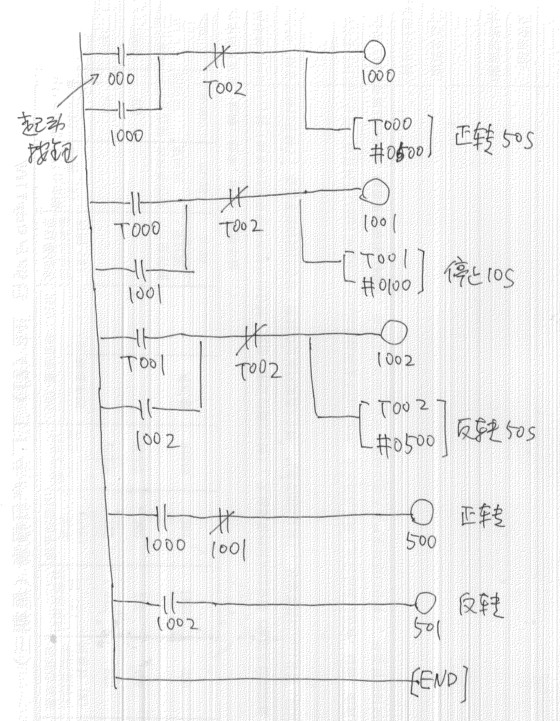 000
T002
1000
起动
按钮
1000
T000
#0500
正转50S
T000
T002
1001
1001
T001
#0100
停止10S
T001
T002
1002
1002
T002
#0500
反转50S
1000
1001
500
正转
1002
501
反转
[END]